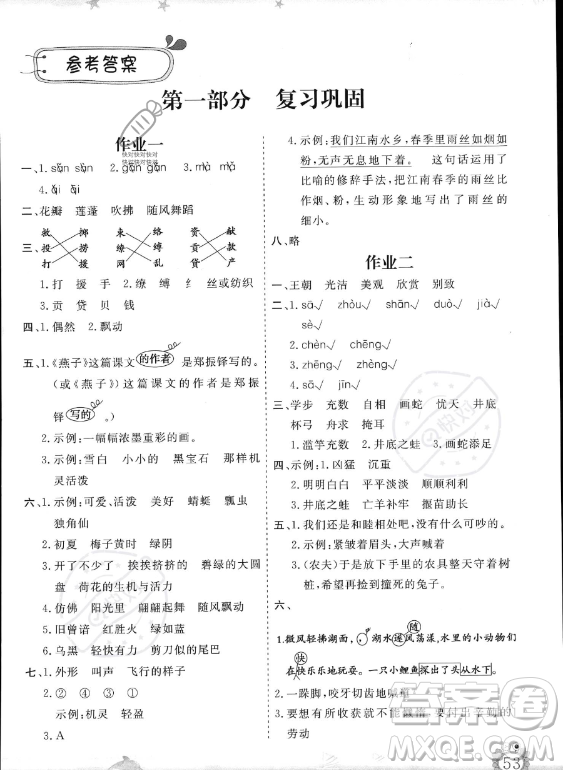 参考答案
第一部分 复习巩固
作业一
一、1.sǎn sàn 2.gān gàn 3.mò mà
4.āi ǎi
二、花瓣 莲蓬 吹拂 随风舞蹈
救 掷 束 络 资 献
三、投 捞 缭 缚 贡
打 援 网 乱 产
1.打 援 手 2.缭 缚 纟 丝或纺织
3.贡 贷 贝 钱
四、1.偶然 2.飘动
五、1.《燕子》这篇课文的作者是郑振铎写的。
(或《燕子》这篇课文的作者是郑振
铎写的)
2.示例:一幅幅浓墨重彩的画。
3.示例:雪白 小小的 黑宝石 那样机
灵活泼
六、1.示例:可爱、活泼 美好 蜻蜓 瓢虫
独角仙
2.初夏 梅子黄时 绿阴
3.开了不少了 挨挨挤挤的 碧绿的大圆
盘 荷花的生机与活力
4.仿佛 阳光里 翩翩起舞 随风飘动
5.旧曾谙 红胜火 绿如蓝
6.乌黑 轻快有力 剪刀似的尾巴
七、1.外形 叫声 飞行的样子
2.② ④ ① ③
示例:机灵 轻盈
3.A
4.示例:我们江南水乡,春季里雨丝如烟如
粉,无声无息地下着。 这句话运用了
比喻的修辞手法,把江南春季的雨丝比
作烟、粉,生动形象地写出了雨丝的
细小。
八、略
作业二
一、王朝 光洁 美观 欣赏 别致
二、1.sā√ zhòu√ shǎn√ zhù√ jià√
sī√
2.chèn√ chēng√
3.zhēng√ zhèng√
4.sā√ jīn√
三、学步 充数 自相 画蛇 忧天 井底
杯弓 舟求 掩耳
1.滥竽充数 2.井底之蛙 3.画蛇添足
四、示例:1.凶猛 沉重
2.明明白白 平平淡淡 顺顺利利
3.井底之蛙 亡羊补牢 掩耳盗铃
五、1.我们还是和睦相处吧,没有什么可吵的。
2.示例:紧皱着眉头,大喊大叫着
3.(农夫)于是放下手里的农具整天守着树
桩,希望再捡到撞死的兔子。
六、
1.微风轻拂湖面,湖水遂随风荡漾,水里的小动物们
在快快乐乐地玩耍。一只小鲤鱼探出了头从水下。
2.一跺脚,咬牙切齿地喊
3.要想有所收获就要付出辛勤的
劳动
快对
答案圈
MXQE.COM
53